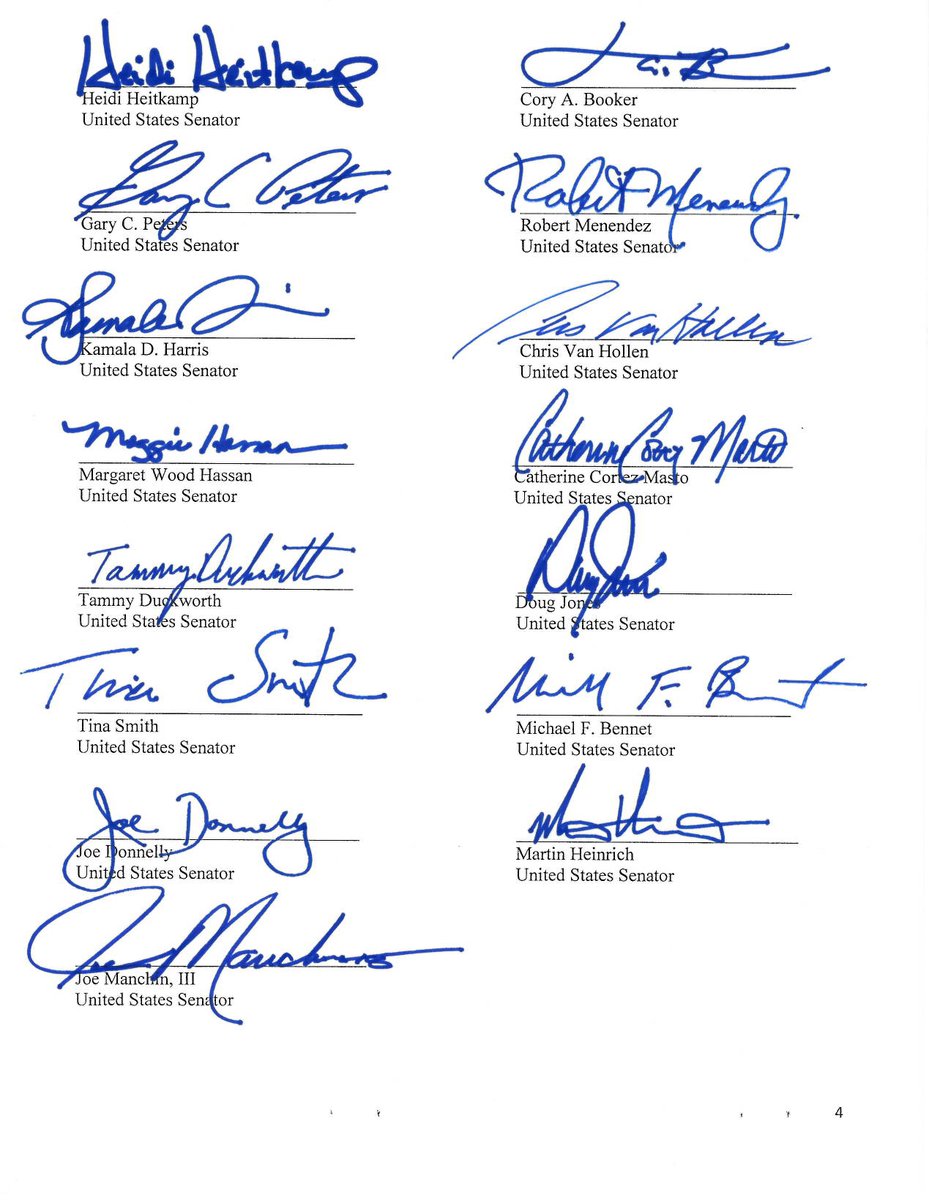 Heidi Heitkamp
Heidi Heitkamp
United States Senator
Cory A. Booker
United States Senator
Gary C Peters
Gary C. Peters
United States Senator
Robert Menendez
Robert Menendez
United States Senator
Kamala
Kamala D. Harris
United States Senator
Chris Van Hollen
Chris Van Hollen
United States Senator
Maggie Hassan
Margaret Wood Hassan
United States Senator
Catherine Cortez Masto
Catherine Cortez Masto
United States Senator
Tammy Duckworth
Tammy Duckworth
United States Senator
Doug Jones
Doug Jones
United States Senator
Tina Smith
Tina Smith
United States Senator
F. Bennet
Michael F. Bennet
United States Senator
Joe Donnelly
Joe Donnelly
United States Senator
Martin Heinrich
United States Senator
Joe Manchin
Joe Manchin, III
United States Senator
4